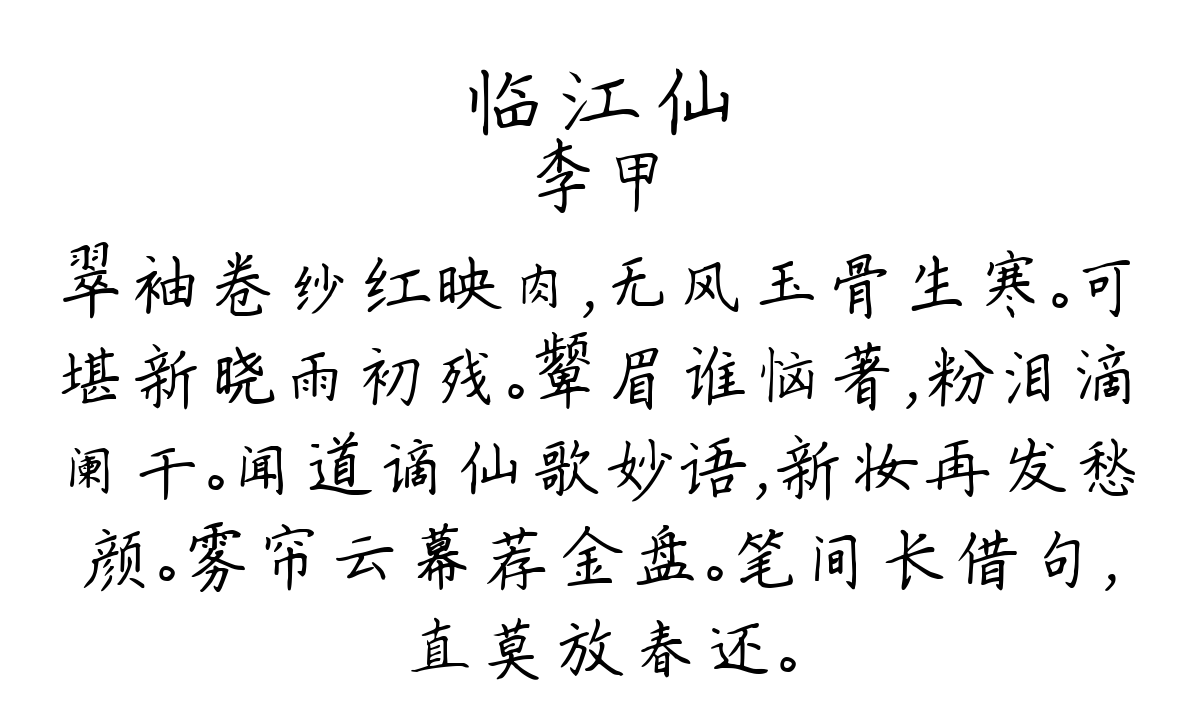 临江仙
李甲
翠袖卷纱红映肉,无风玉骨生寒。可
堪新晓雨初残。颦眉谁恼著,粉泪滴
阑干。闻道谪仙歌妙语,新妆再发愁
颜。雾帘云幕荐金盘。笔间长借句,
直莫放春还。